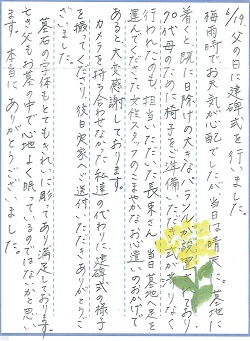 6/19 父の日に建碑式を行いました。
梅雨時でお天気が心配でしたが当日は晴天!! 墓地に
着くと既に日除けの大きなパラソルが設置してあり
70代母のために椅子をご準備いただき式が滞りなく
行われたのも、担当いただいた長束さん、当日墓地へ足を
運んでくださった女性スタッフのこまやかなお心遣いのおかげで
あると大変感謝しております。
カメラを持ち合わせなかった私達の代わりに建碑式の様子
を撮ってくださり後日実家へご送付いただきありがとうご
ざいました。
墓石の字体もとてもきれいに彫てあり満足しております。
亡き父もお墓の中で心地よく眠っているのではないかと思い
ます。本当にありがとうございました。